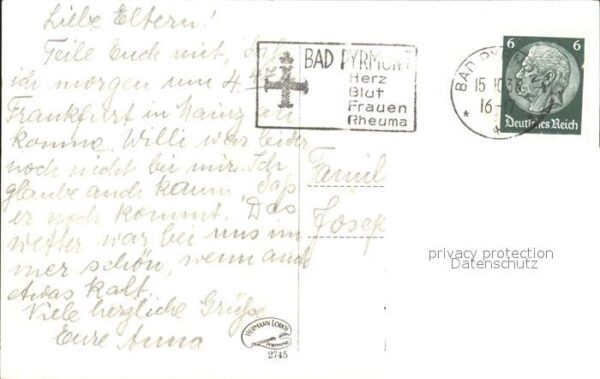 Liebe Eltern!
Teile Euch mit, daß
ich morgen um 4.47
Frankfurt in Mainz an
komme. Willi war leider
noch nicht bei mir. Ich
glaube auch kaum, daß
er noch kommt. Das
Wetter war bei uns im
mer schön, wenn auch
etwas kalt.
Viele herzliche Grüße
Eure Anna
BAD PYRMONT
Herz
Blut
Frauen
Rheuma
BAD PYR
15.10.3
16-17
6 6
Deutsches Reich
Famil
Josep
privacy protection
Datenschutz
HERMANN LORCH
DORTMUND
2745